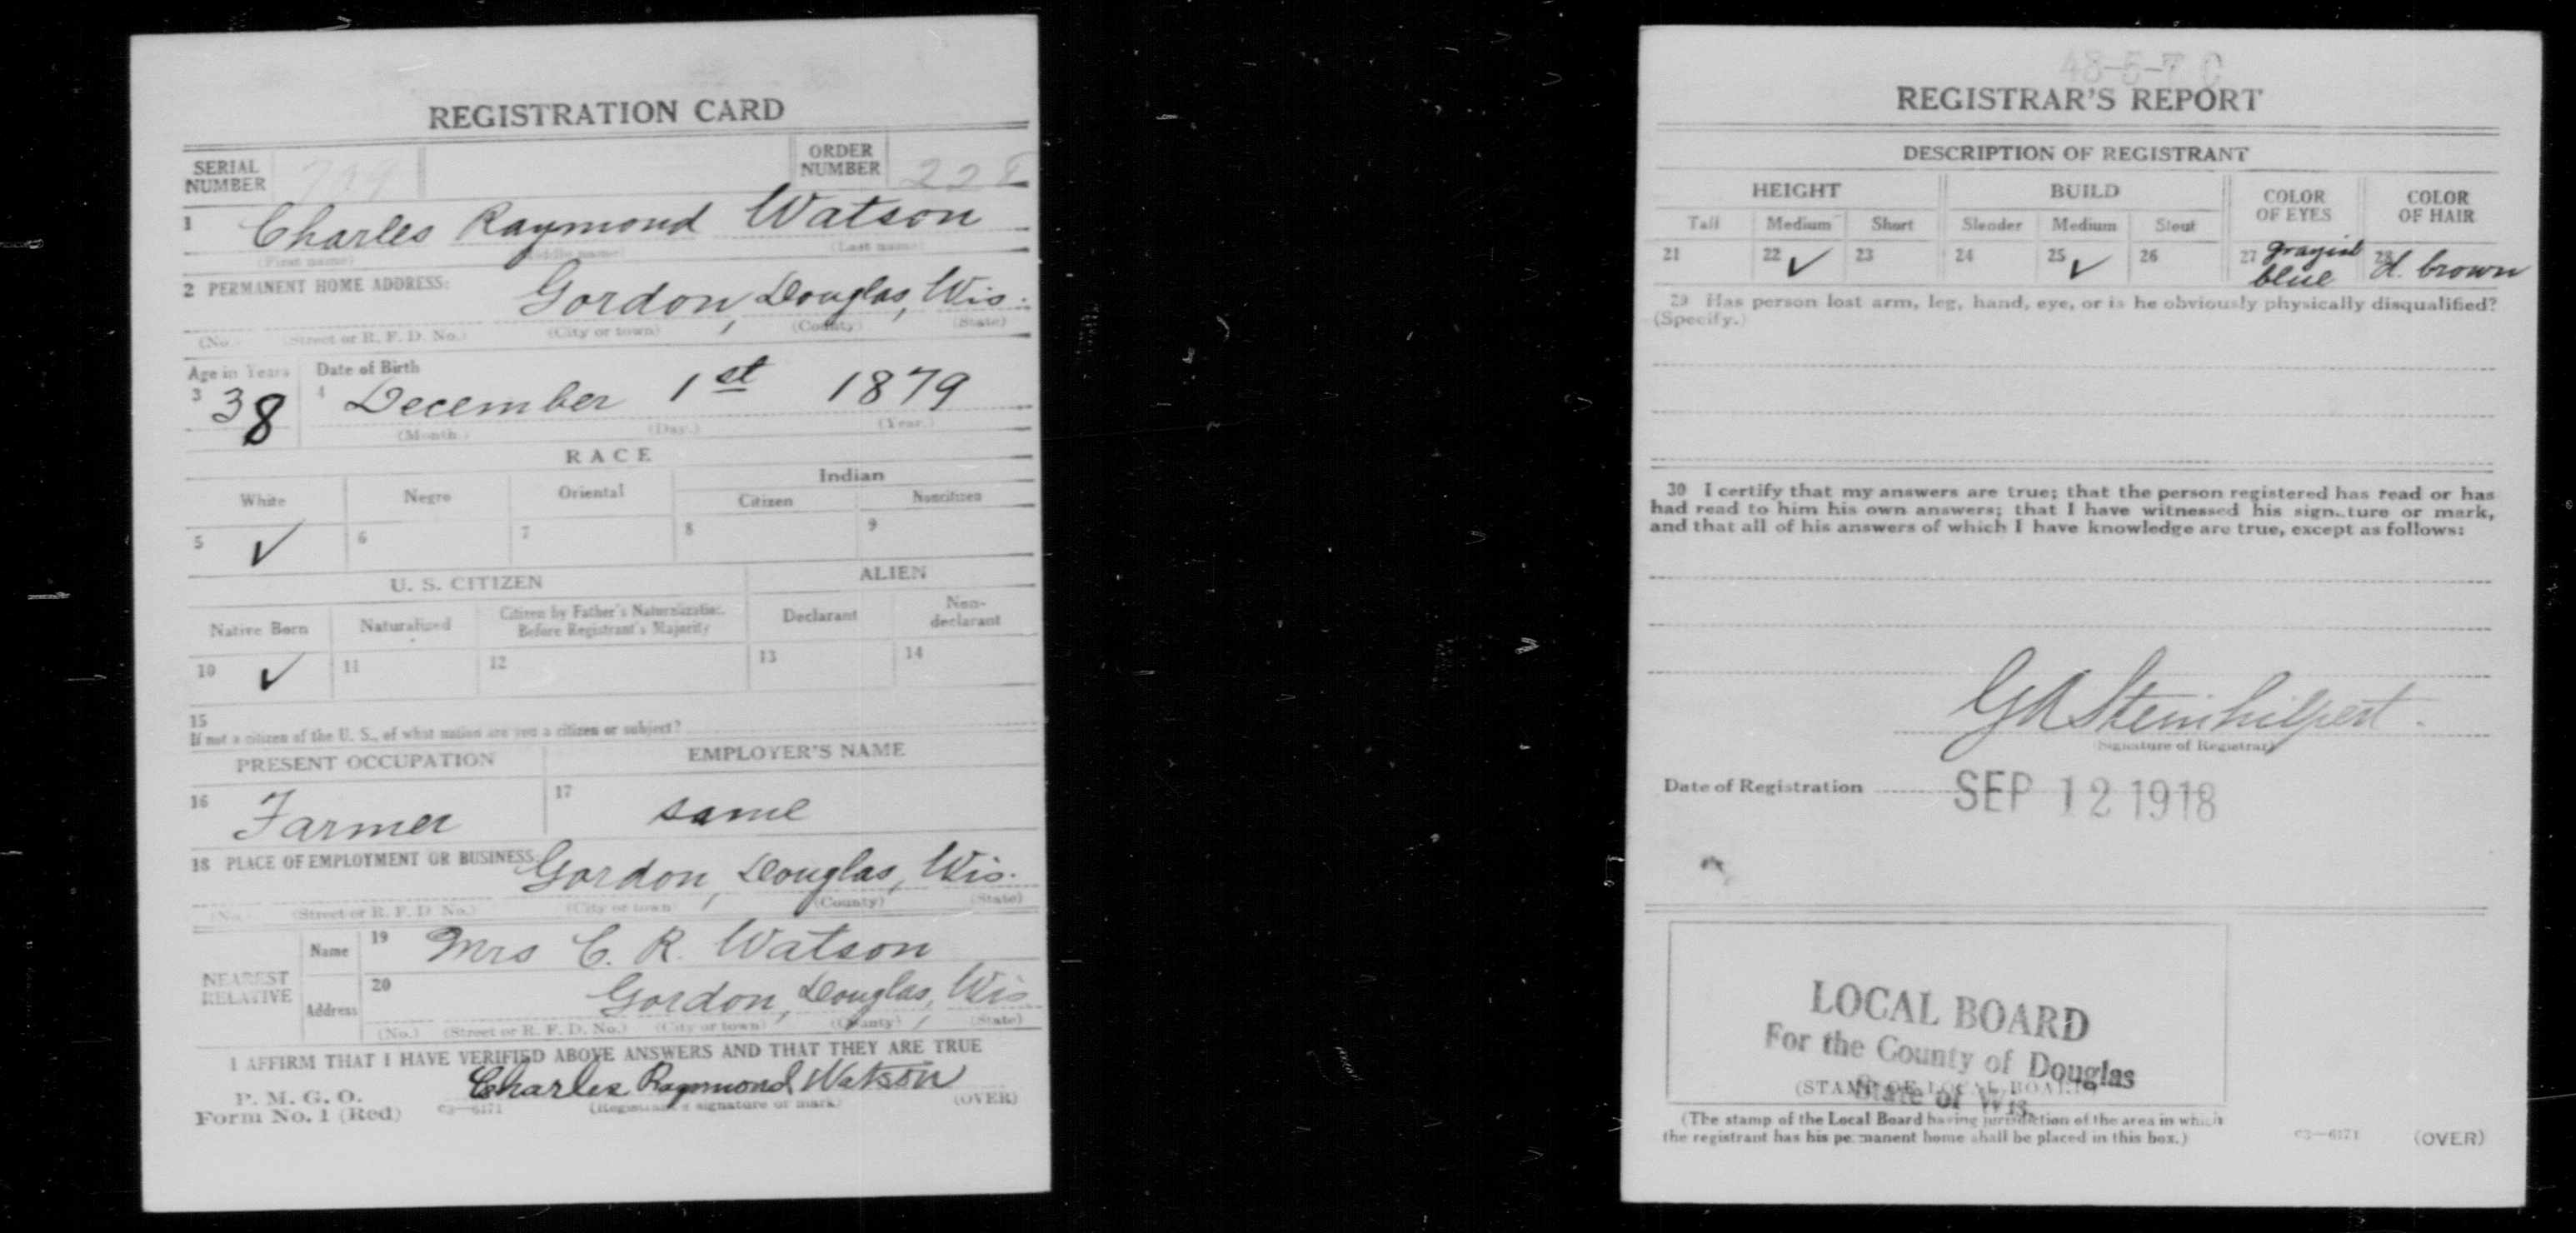 REGISTRATION CARD
SERIAL NUMBER
ORDER NUMBER
1 Charles Raymond Watson
(First name) (Middle name) (Last name)
2 PERMANENT HOME ADDRESS: Gordon, Douglas, Wis.
(No.) (Street or R. F. D. No.) (City or town) (County) (State)
Age in Years Date of Birth
3 38 4 December 1st 1879
(Month.) (Day.) (Year.)
RACE
White Negro Oriental Indian
Citizen Noncitizen
5 ✓ 6 7 8 9
U. S. CITIZEN ALIEN
Native Born Naturalized Citizen by Father's Naturalization Before Registrant's Majority Declarant Non-declarant
10 ✓ 11 12 13 14
15
If not a citizen of the U. S., of what nation are you a citizen or subject?
PRESENT OCCUPATION EMPLOYER'S NAME
16 Farmer 17 same
18 PLACE OF EMPLOYMENT OR BUSINESS: Gordon, Douglas, Wis.
(No.) (Street or R. F. D. No.) (City or town) (County) (State)
NEAREST RELATIVE
Name 19 Mrs C. R. Watson
Address 20 Gordon, Douglas, Wis
(No.) (Street or R. F. D. No.) (City or town) (County) (State)
I AFFIRM THAT I HAVE VERIFIED ABOVE ANSWERS AND THAT THEY ARE TRUE
P. M. G. O.
Form No. 1 (Red) c3—6171 Charles Raymond Watson
(Registrant's signature or mark) (OVER)
REGISTRAR'S REPORT
DESCRIPTION OF REGISTRANT
HEIGHT BUILD COLOR OF EYES COLOR OF HAIR
Tall Medium Short Slender Medium Stout
21 22 ✓ 23 24 25 ✓ 26 27 grayish blue 28 d. brown
29 Has person lost arm, leg, hand, eye, or is he obviously physically disqualified?
(Specify.)
30 I certify that my answers are true; that the person registered has read or has
had read to him his own answers; that I have witnessed his signature or mark,
and that all of his answers of which I have knowledge are true, except as follows:
G A Steinhilpert.
(Signature of Registrar)
Date of Registration SEP 12 1918
LOCAL BOARD
For the County of Douglas
State of Wis.
(STAMP OF LOCAL BOARD)
(The stamp of the Local Board having jurisdiction of the area in which
the registrant has his permanent home shall be placed in this box.)
c3—6171 (OVER)